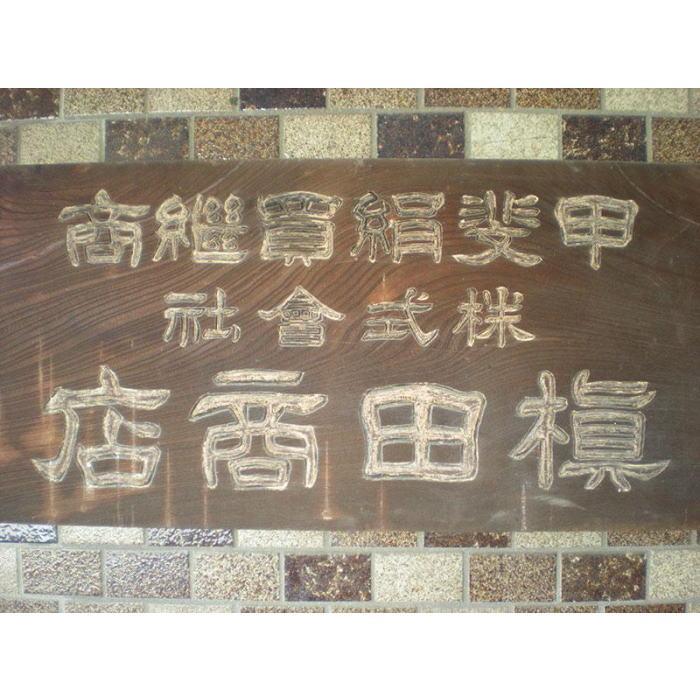 甲斐絹買繼商
株式會社
槙田商店